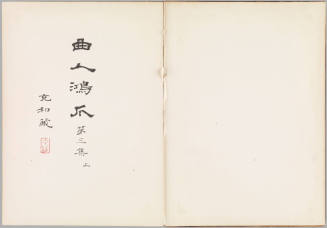 曲人鴻爪
第三集
上
充和藏